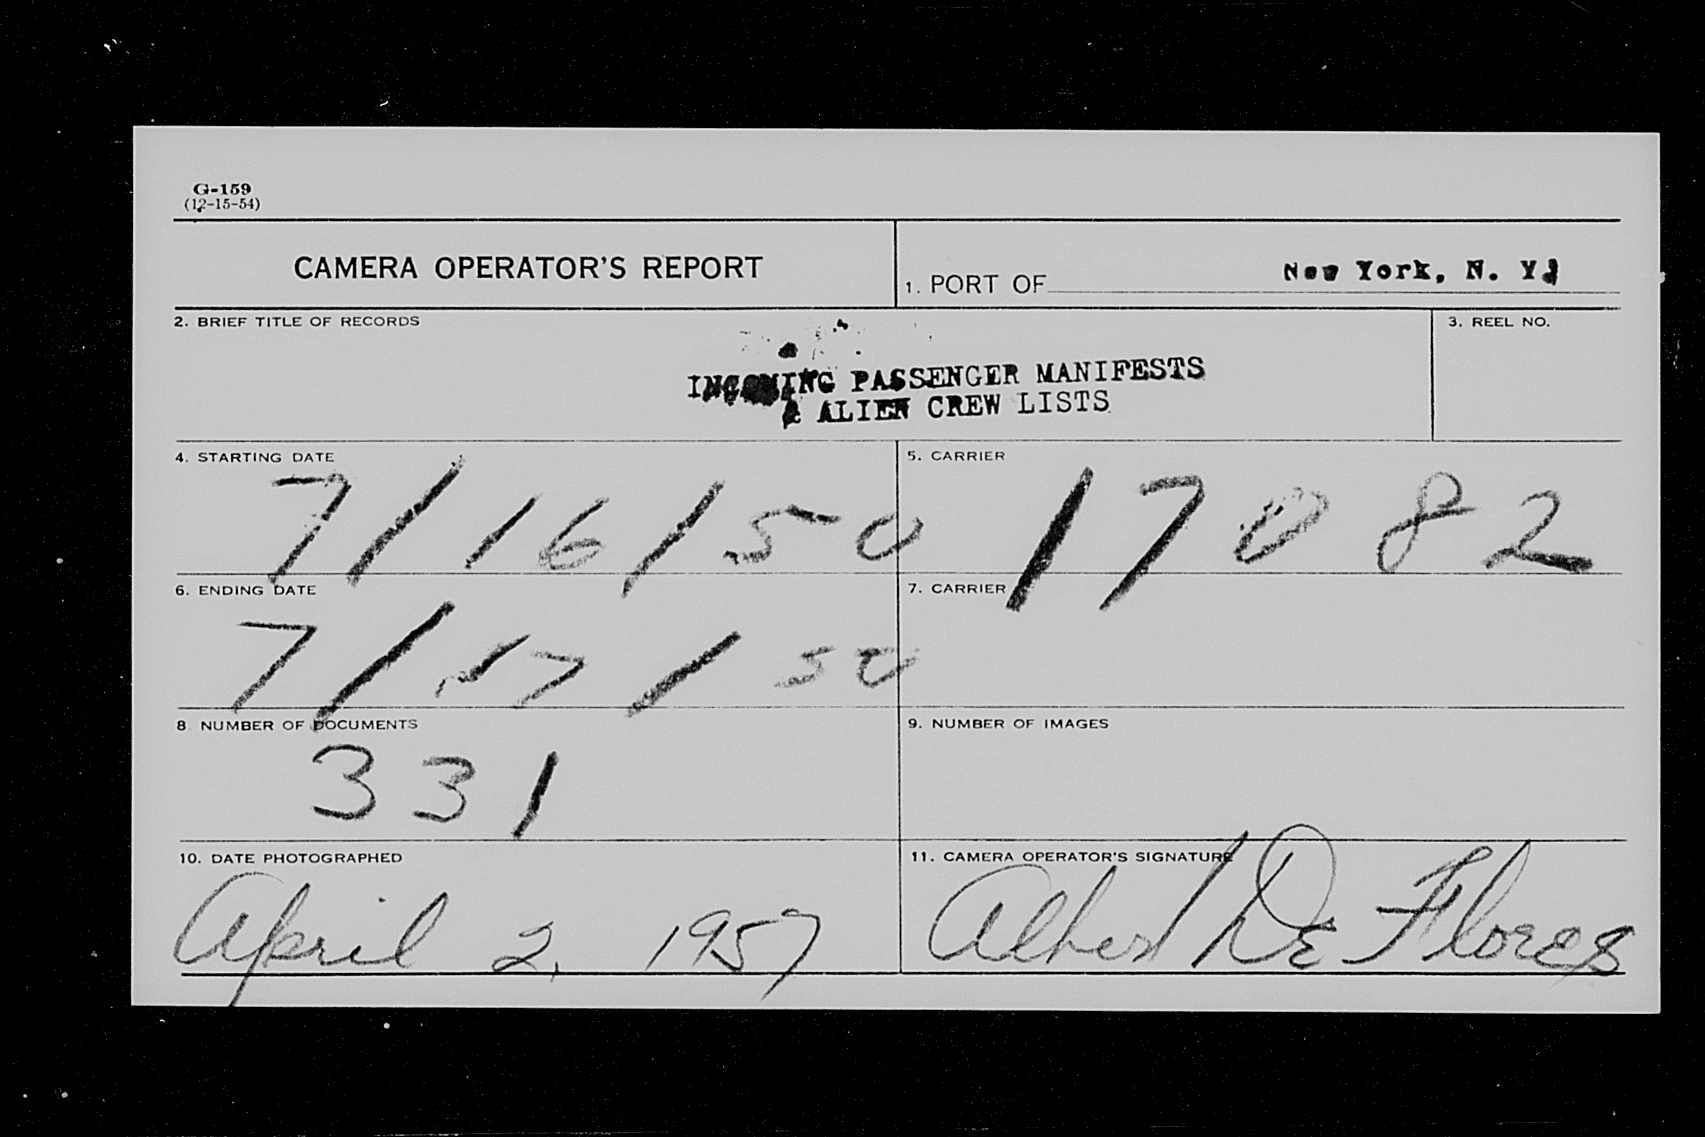 G-159
(12-15-54)
CAMERA OPERATOR'S REPORT
1. PORT OF New York, N. Y.
2. BRIEF TITLE OF RECORDS
3. REEL NO.
INCOMING PASSENGER MANIFESTS
& ALIEN CREW LISTS
4. STARTING DATE
7/16/50
5. CARRIER
17082
6. ENDING DATE
7/17/50
7. CARRIER
8 NUMBER OF DOCUMENTS
331
9. NUMBER OF IMAGES
10. DATE PHOTOGRAPHED
April 2, 1957
11. CAMERA OPERATOR'S SIGNATURE
Albert De Flores